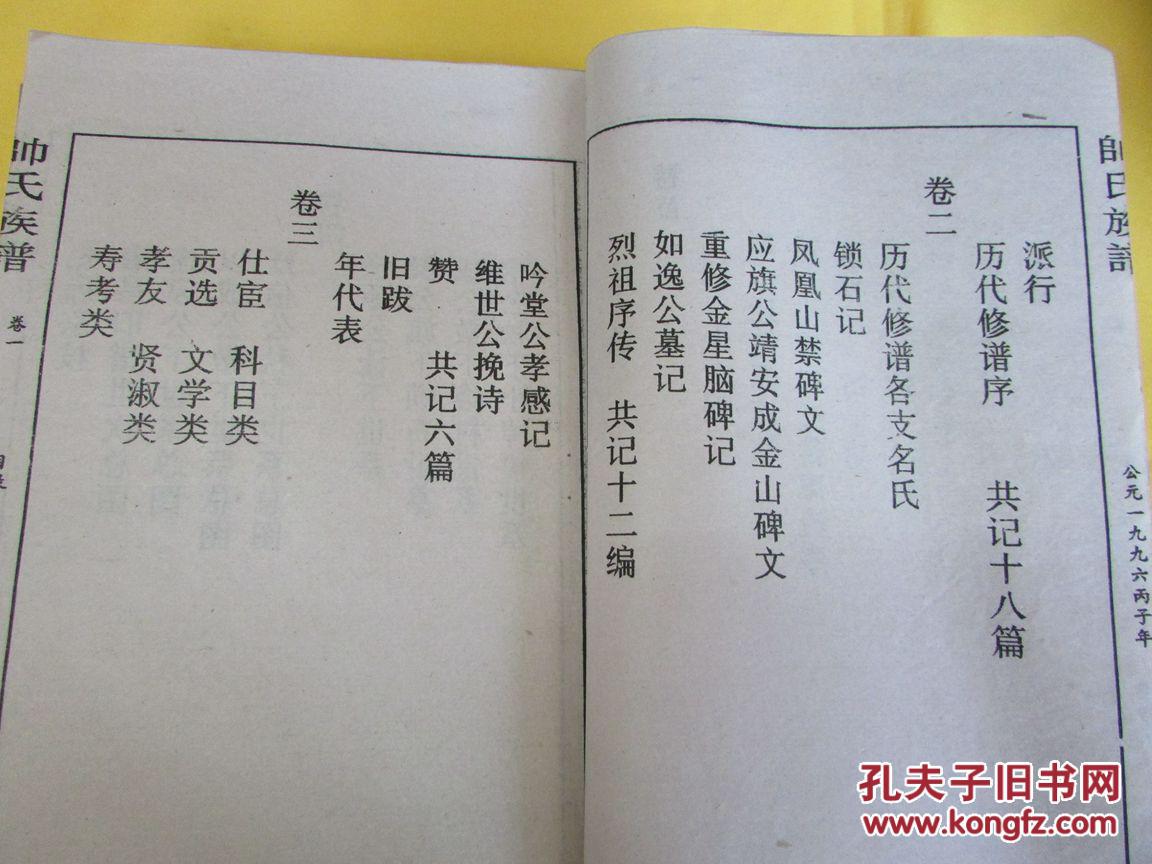 帥氏族譜
公元一九九六丙子年
派行
历代修谱序 共记十八篇
卷二
历代修谱各支名氏
锁石记
凤凰山禁碑文
应旗公靖安成金山碑文
重修金星脑碑记
如逸公墓记
烈祖序传 共记十二编
吟堂公孝感记
维世公挽诗
赞 共记六篇
旧跋
年代表
卷三
仕宦 科目类
贡选 文学类
孝友 贤淑类
寿考类
帥氏族譜
卷一
孔夫子旧书网
www.kongfz.com